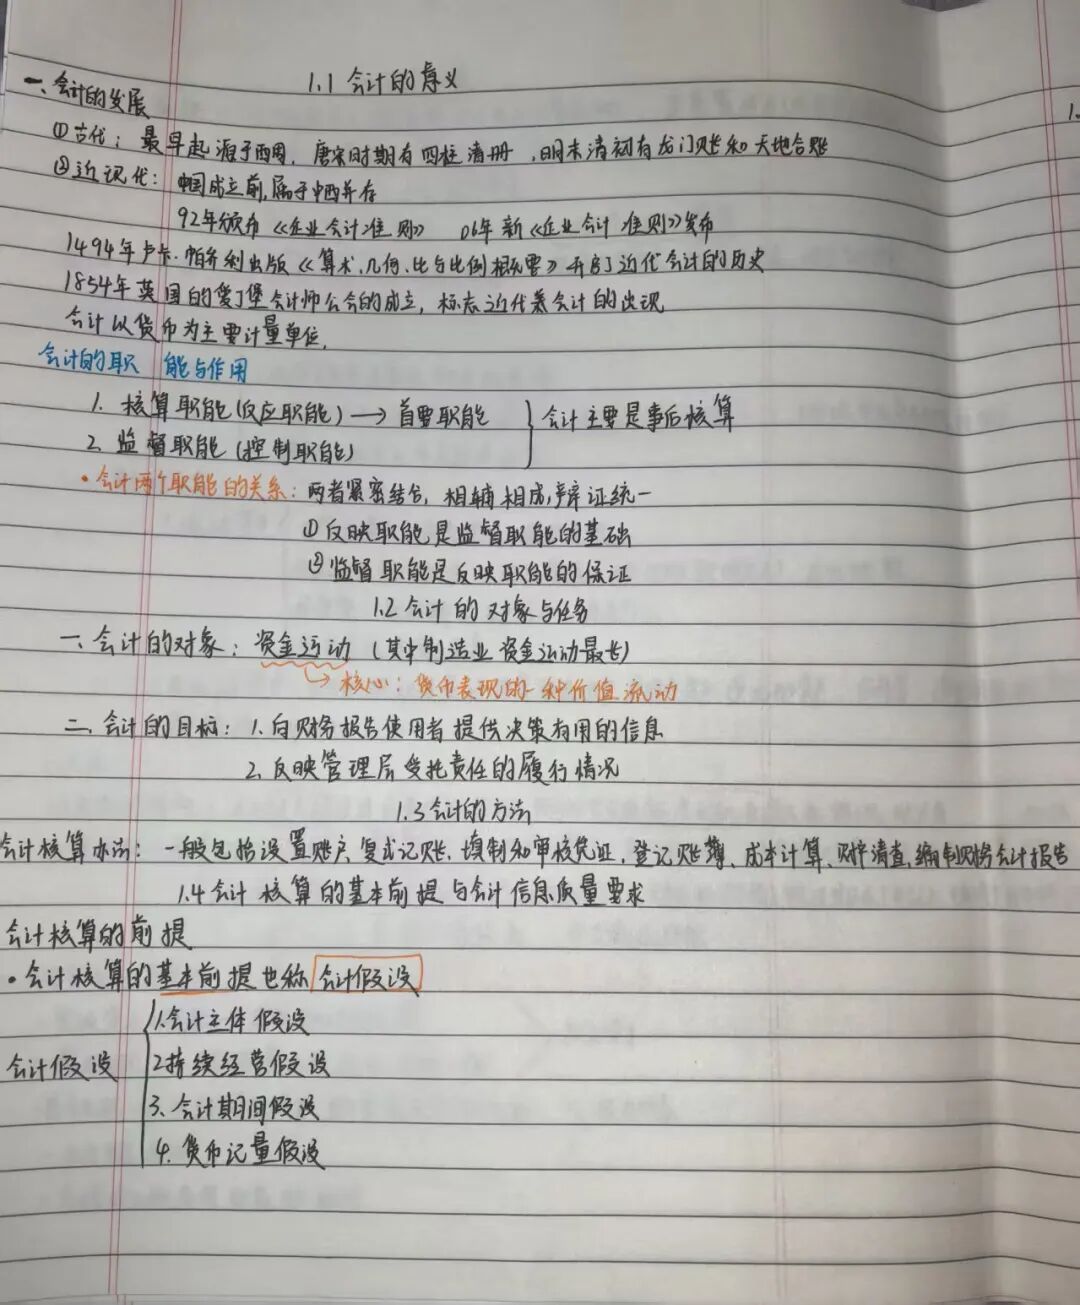 1.1 会计的意义
一、会计的发展
①古代：最早起源于西周，唐宋时期有四柱清册，明末清初有龙门账和天地合账
②近现代：中国成立前，属于中西并存
92年颁布《企业会计准则》 06年新《企业会计准则》发布
1494年卢卡·帕乔利出版《算术、几何、比与比例概要》开启了近代会计的历史
1854年英国的爱丁堡会计师公会的成立，标志近代会计的出现
会计以货币为主要计量单位，
会计的职能与作用
1. 核算职能(反应职能) → 首要职能
2. 监督职能(控制职能)
会计主要是事后核算
·会计两个职能的关系：两者紧密结合，相辅相成，辩证统一
①反映职能是监督职能的基础
②监督职能是反映职能的保证
1.2 会计的对象与任务
一、会计的对象：资金运动 (其中制造业资金运动最长)
↳核心：货币表现的一种价值流动
二、会计的目标：1.向财务报告使用者提供决策有用的信息
2.反映管理层受托责任的履行情况
1.3会计的方法
会计核算办法：一般包括设置账户、复式记账、填制和审核凭证，登记账簿、成本计算、财产清查，编制财务会计报告
1.4会计核算的基本前提与会计信息质量要求
会计核算的前提
·会计核算的基本前提也称会计假设
会计假设
1.会计主体假设
2持续经营假设
3.会计期间假设
4.货币记量假设